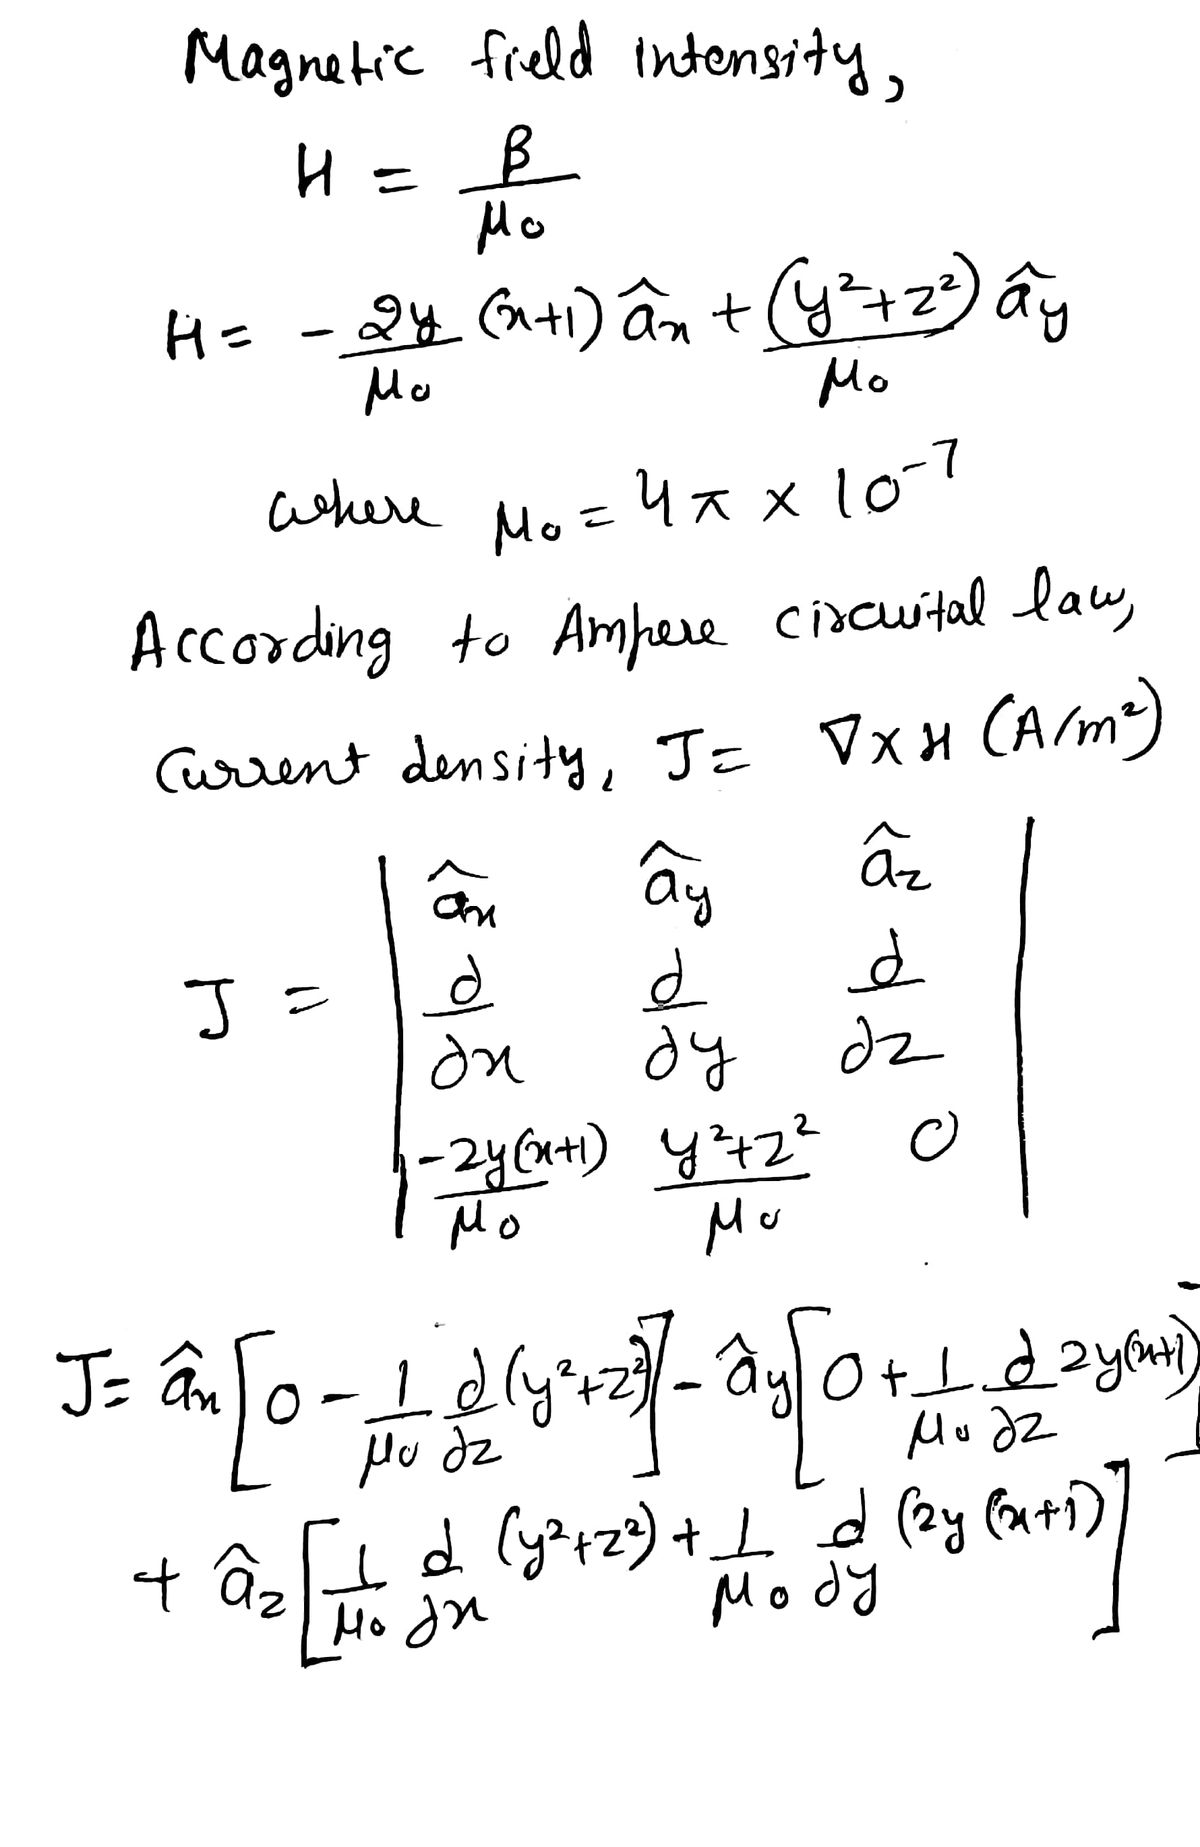 Magnetic field intensity,
H = B/μ₀
H = - 2y/μ₀ (x+1) âx + (y²+z²)/μ₀ ây
where μ₀ = 4π × 10⁻⁷
According to Ampere circuital law,
Current density, J = ∇×H (A/m²)
J = | âx ây âz |
| ∂/∂x ∂/∂y ∂/∂z |
| -2y(x+1)/μ₀ y²+z²/μ₀ 0 |
J = âx [0 - 1/μ₀ ∂/∂z (y²+z²)] - ây [0 + 1/μ₀ ∂/∂z 2y(x+1)]
+ âz [1/μ₀ ∂/∂x (y²+z²) + 1/μ₀ ∂/∂y (2y (x+1)]